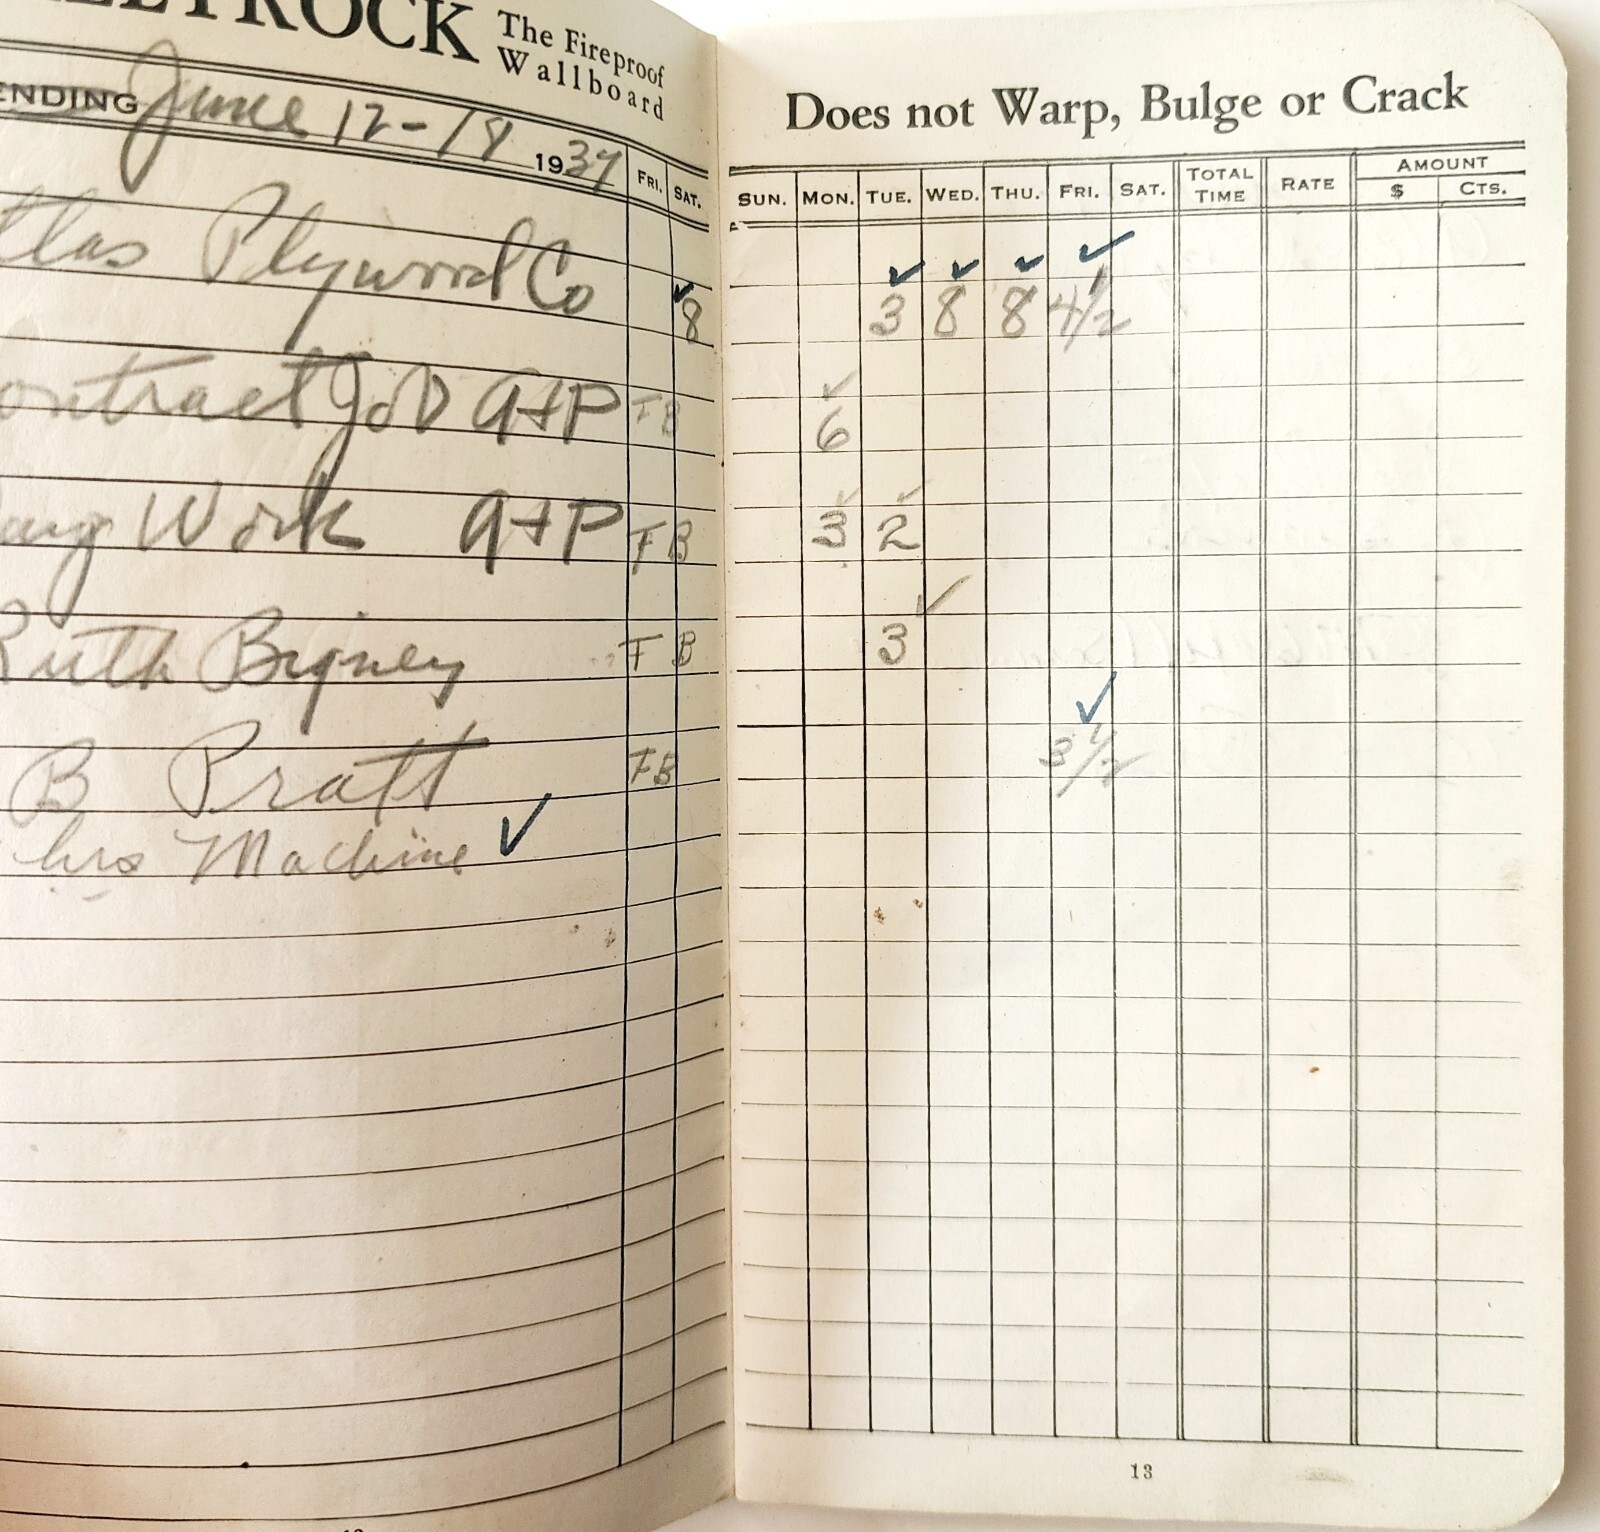 ROCK The Fireproof
Wallboard
ENDING June 12-18 1937
FRI. SAT.
Plywood Co 8
Job A+P FB
Work A+P FB
Ruth Bigney FB
B Pratt FB
hrs Machine ✓
Does not Warp, Bulge or Crack
SUN. MON. TUE. WED. THU. FRI. SAT. TOTAL TIME RATE AMOUNT $ CTS.
3 8 8 4 1/2
6
3 2
3
3 1/2
13